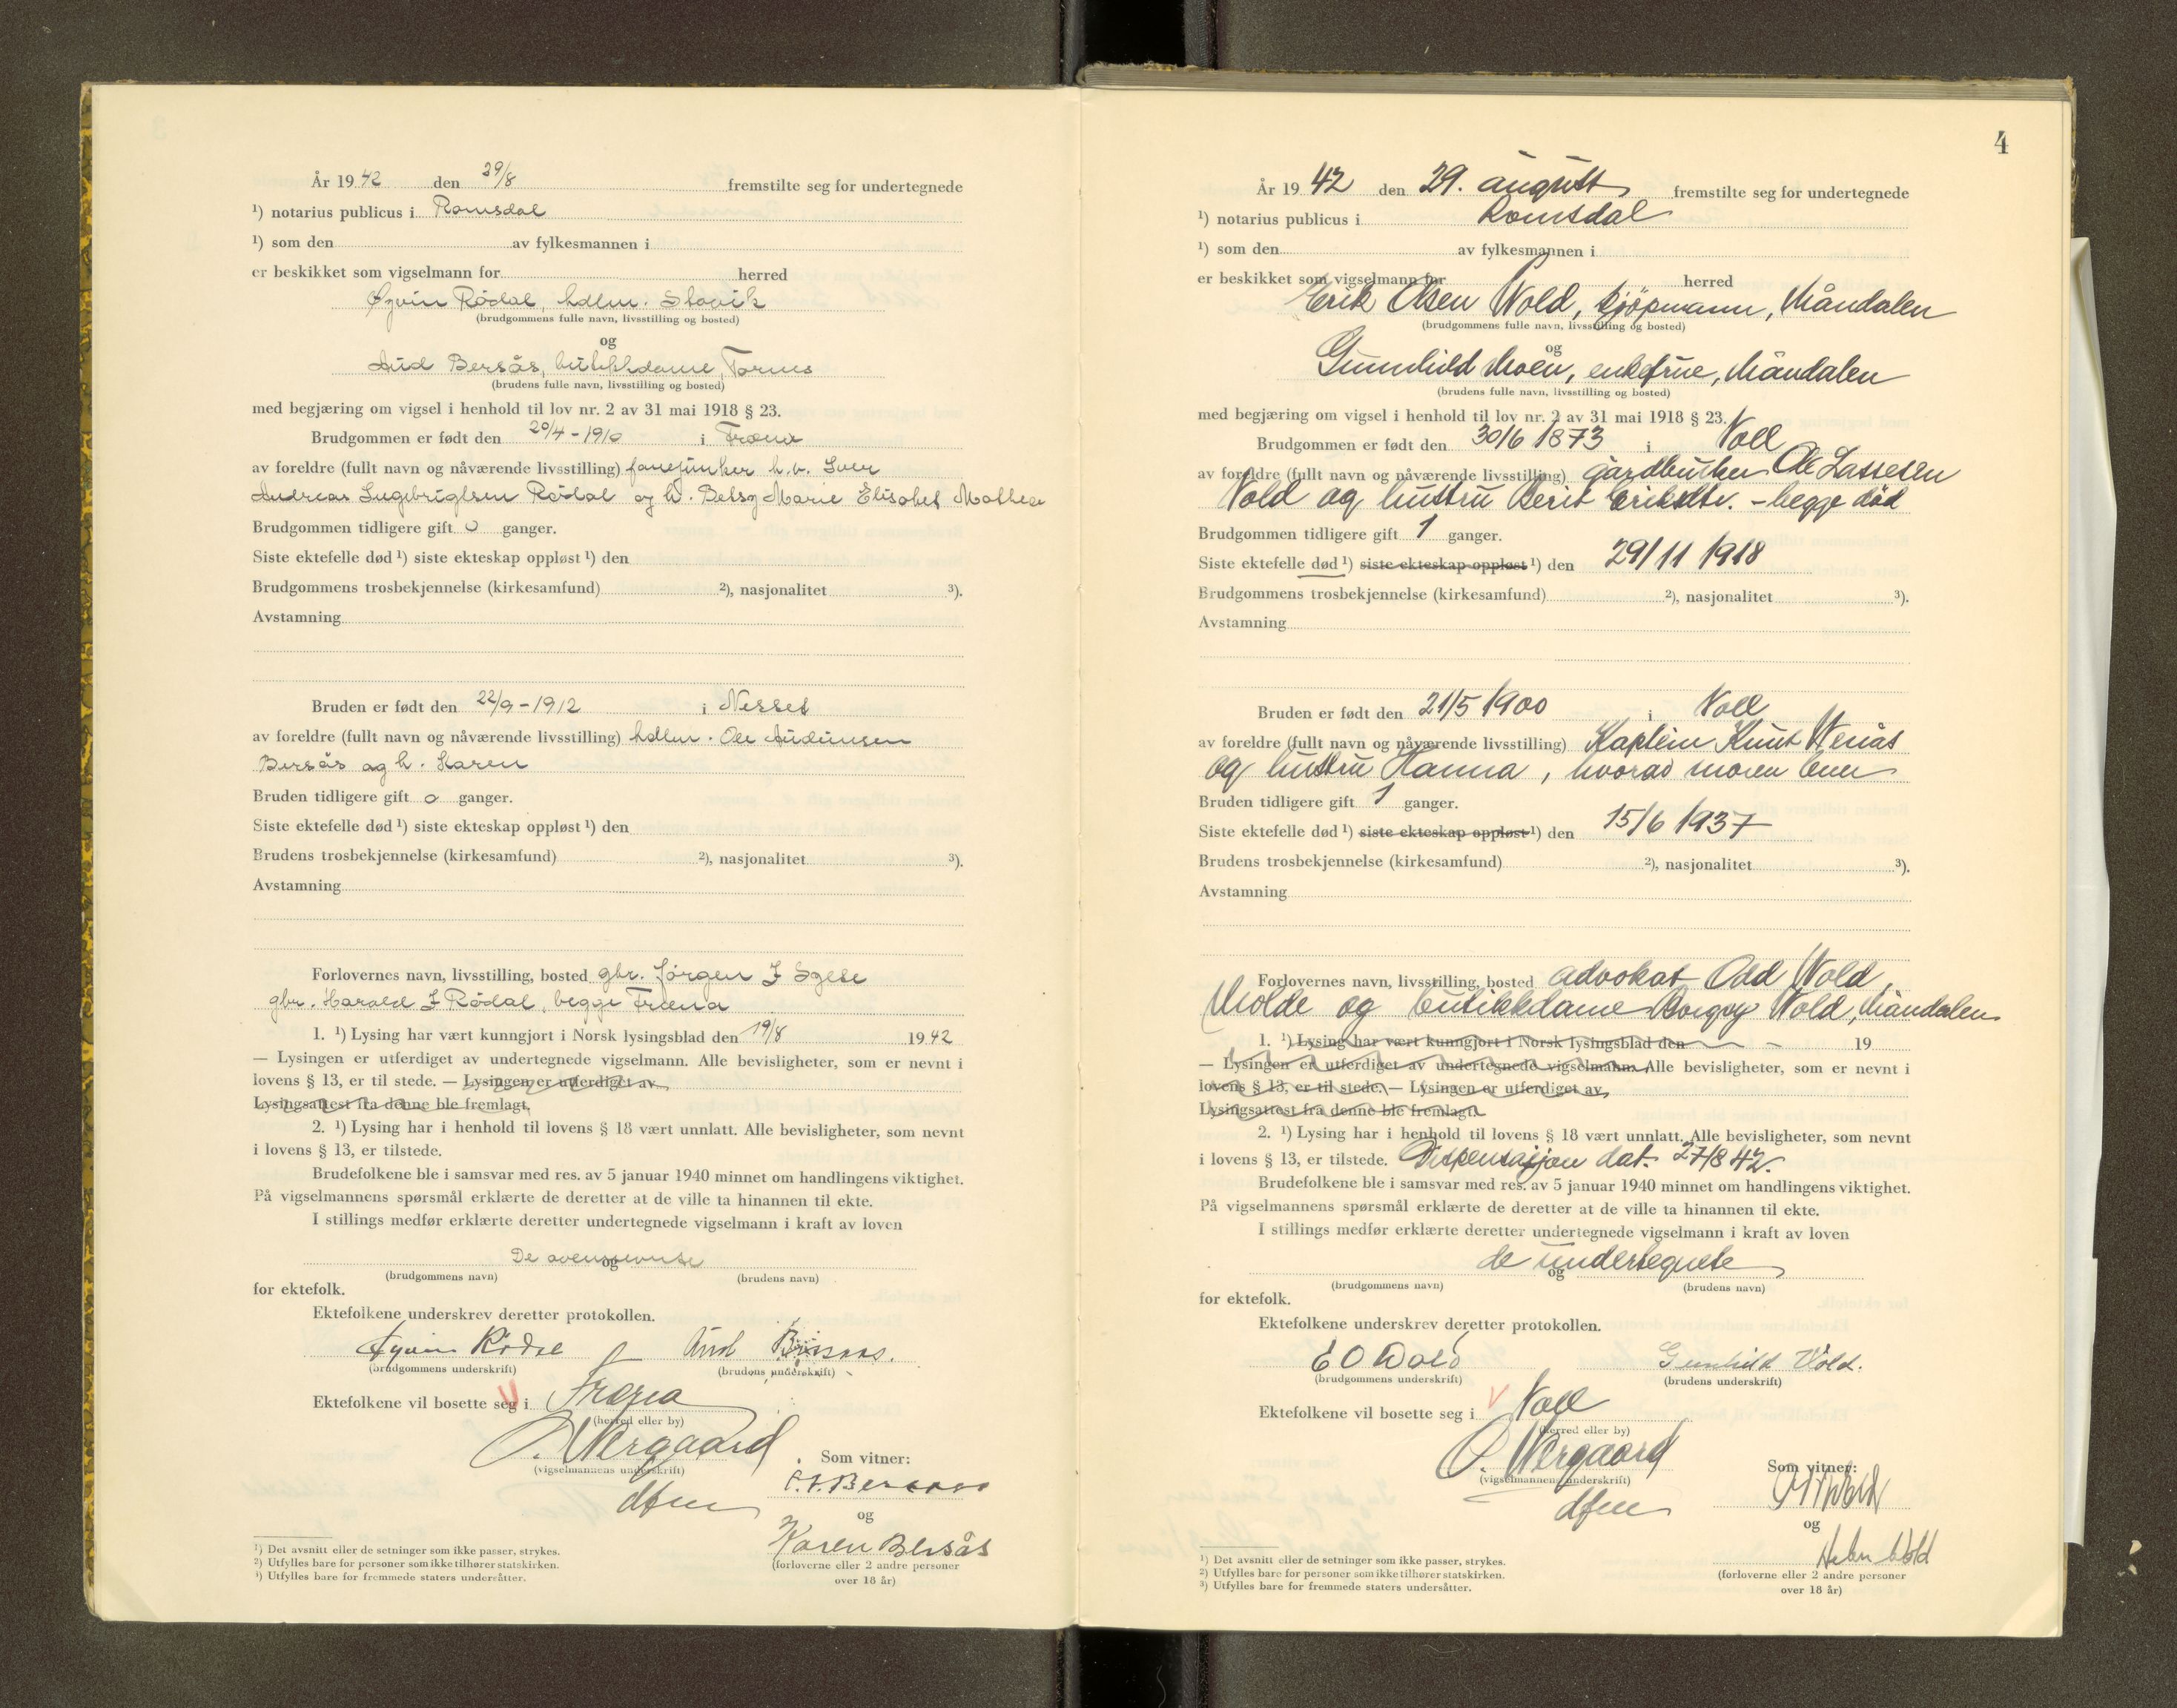 År 19 42 den 29/8 fremstilte seg for undertegnede
¹) notarius publicus i Romsdal
¹) som den av fylkesmannen i
er beskikket som vigselmann for herred
Øyvin Rødal, hdlm. Stavik
(brudgommens fulle navn, livsstilling og bosted)
og
Aud Bersås, butikkdame, Tornes
(brudens fulle navn, livsstilling og bosted)
med begjæring om vigsel i henhold til lov nr. 2 av 31 mai 1918 § 23.
Brudgommen er født den 20/4 - 1910 i Fræna
av foreldre (fullt navn og nåværende livsstilling) fanejunker h.v. Iver
Andreas Ingebrigtsen Rødal og h. Betsy Marie Elisabet Mathea
Brudgommen tidligere gift 0 ganger.
Siste ektefelle død ¹) siste ekteskap oppløst ¹) den
Brudgommens trosbekjennelse (kirkesamfund) ²), nasjonalitet ³).
Avstamning
Bruden er født den 22/9 - 1912 i Nesset
av foreldre (fullt navn og nåværende livsstilling) hdlm. Ole Audunsen
Bersås og h. Karen
Bruden tidligere gift 0 ganger.
Siste ektefelle død ¹) siste ekteskap oppløst ¹) den
Brudens trosbekjennelse (kirkesamfund) ²), nasjonalitet ³).
Avstamning
Forlovernes navn, livsstilling, bosted gbr. Jørgen J
gbr. Harald I Rødal, begge Fræna
1. ¹) Lysing har vært kunngjort i Norsk lysingsblad den 19/8 19 42
— Lysingen er utferdiget av undertegnede vigselmann. Alle bevisligheter, som er nevnt i
lovens § 13, er til stede. — Lysingen er utferdiget av
Lysingsattest fra denne ble fremlagt.
2. ¹) Lysing har i henhold til lovens § 18 vært unnlatt. Alle bevisligheter, som nevnt
i lovens § 13, er tilstede.
Brudefolkene ble i samsvar med res. av 5 januar 1940 minnet om handlingens viktighet.
På vigselmannens spørsmål erklærte de deretter at de ville ta hinannen til ekte.
I stillings medfør erklærte deretter undertegnede vigselmann i kraft av loven
De ovennevnte
og
(brudgommens navn) (brudens navn)
for ektefolk.
Ektefolkene underskrev deretter protokollen.
Øyvin Rødal Aud Bersaas.
(brudgommens underskrift) (brudens underskrift)
Ektefolkene vil bosette seg i Fræna
(herred eller by)
O. Wergaard
(vigselmannens underskrift)
dfm
Som vitner:
Bersaas
og
Karen Bersås
(forloverne eller 2 andre personer
over 18 år)
¹) Det avsnitt eller de setninger som ikke passer, strykes.
²) Utfylles bare for personer som ikke tilhører statskirken.
³) Utfylles bare for fremmede staters undersåtter.
4
År 19 42 den 29. august fremstilte seg for undertegnede
¹) notarius publicus i Romsdal
¹) som den av fylkesmannen i
er beskikket som vigselmann for herred
Erik Olsen Wold, kjøpmann, Måndalen
(brudgommens fulle navn, livsstilling og bosted)
og
Gunnhild Moen, enkefrue, Måndalen
(brudens fulle navn, livsstilling og bosted)
med begjæring om vigsel i henhold til lov nr. 2 av 31 mai 1918 § 23.
Brudgommen er født den 30/6 1873 i Voll
av foreldre (fullt navn og nåværende livsstilling) gårdbruker Ole Lassesen
Vold og hustru Berit Eriksdtr. - begge död
Brudgommen tidligere gift 1 ganger.
Siste ektefelle død ¹) siste ekteskap oppløst ¹) den 29/11 1918
Brudgommens trosbekjennelse (kirkesamfund) ²), nasjonalitet ³).
Avstamning
Bruden er født den 21/5 1900 i Voll
av foreldre (fullt navn og nåværende livsstilling) Kaptein Knut Venås
og hustru Hanna, hvorav moren lever
Bruden tidligere gift 1 ganger.
Siste ektefelle død ¹) siste ekteskap oppløst ¹) den 15/6 1937
Brudens trosbekjennelse (kirkesamfund) ²), nasjonalitet ³).
Avstamning
Forlovernes navn, livsstilling, bosted advokat Odd Wold,
Molde og butikkdame Borgny Wold, Måndalen
1. ¹) Lysing har vært kunngjort i Norsk lysingsblad den 19
— Lysingen er utferdiget av undertegnede vigselmann. Alle bevisligheter, som er nevnt i
lovens § 13, er til stede. — Lysingen er utferdiget av
Lysingsattest fra denne ble fremlagt.
2. ¹) Lysing har i henhold til lovens § 18 vært unnlatt. Alle bevisligheter, som nevnt
i lovens § 13, er tilstede. Dispensasjon dat. 27/8 42.
Brudefolkene ble i samsvar med res. av 5 januar 1940 minnet om handlingens viktighet.
På vigselmannens spørsmål erklærte de deretter at de ville ta hinannen til ekte.
I stillings medfør erklærte deretter undertegnede vigselmann i kraft av loven
de undertegnete
og
(brudgommens navn) (brudens navn)
for ektefolk.
Ektefolkene underskrev deretter protokollen.
E O Wold Gunhild Vold.
(brudgommens underskrift) (brudens underskrift)
Ektefolkene vil bosette seg i Voll
(herred eller by)
O. Wergaard
(vigselmannens underskrift)
dfm
Som vitner:
Wold
og
Wold
(forloverne eller 2 andre personer
over 18 år)
¹) Det avsnitt eller de setninger som ikke passer, strykes.
²) Utfylles bare for personer som ikke tilhører statskirken.
³) Utfylles bare for fremmede staters undersåtter.